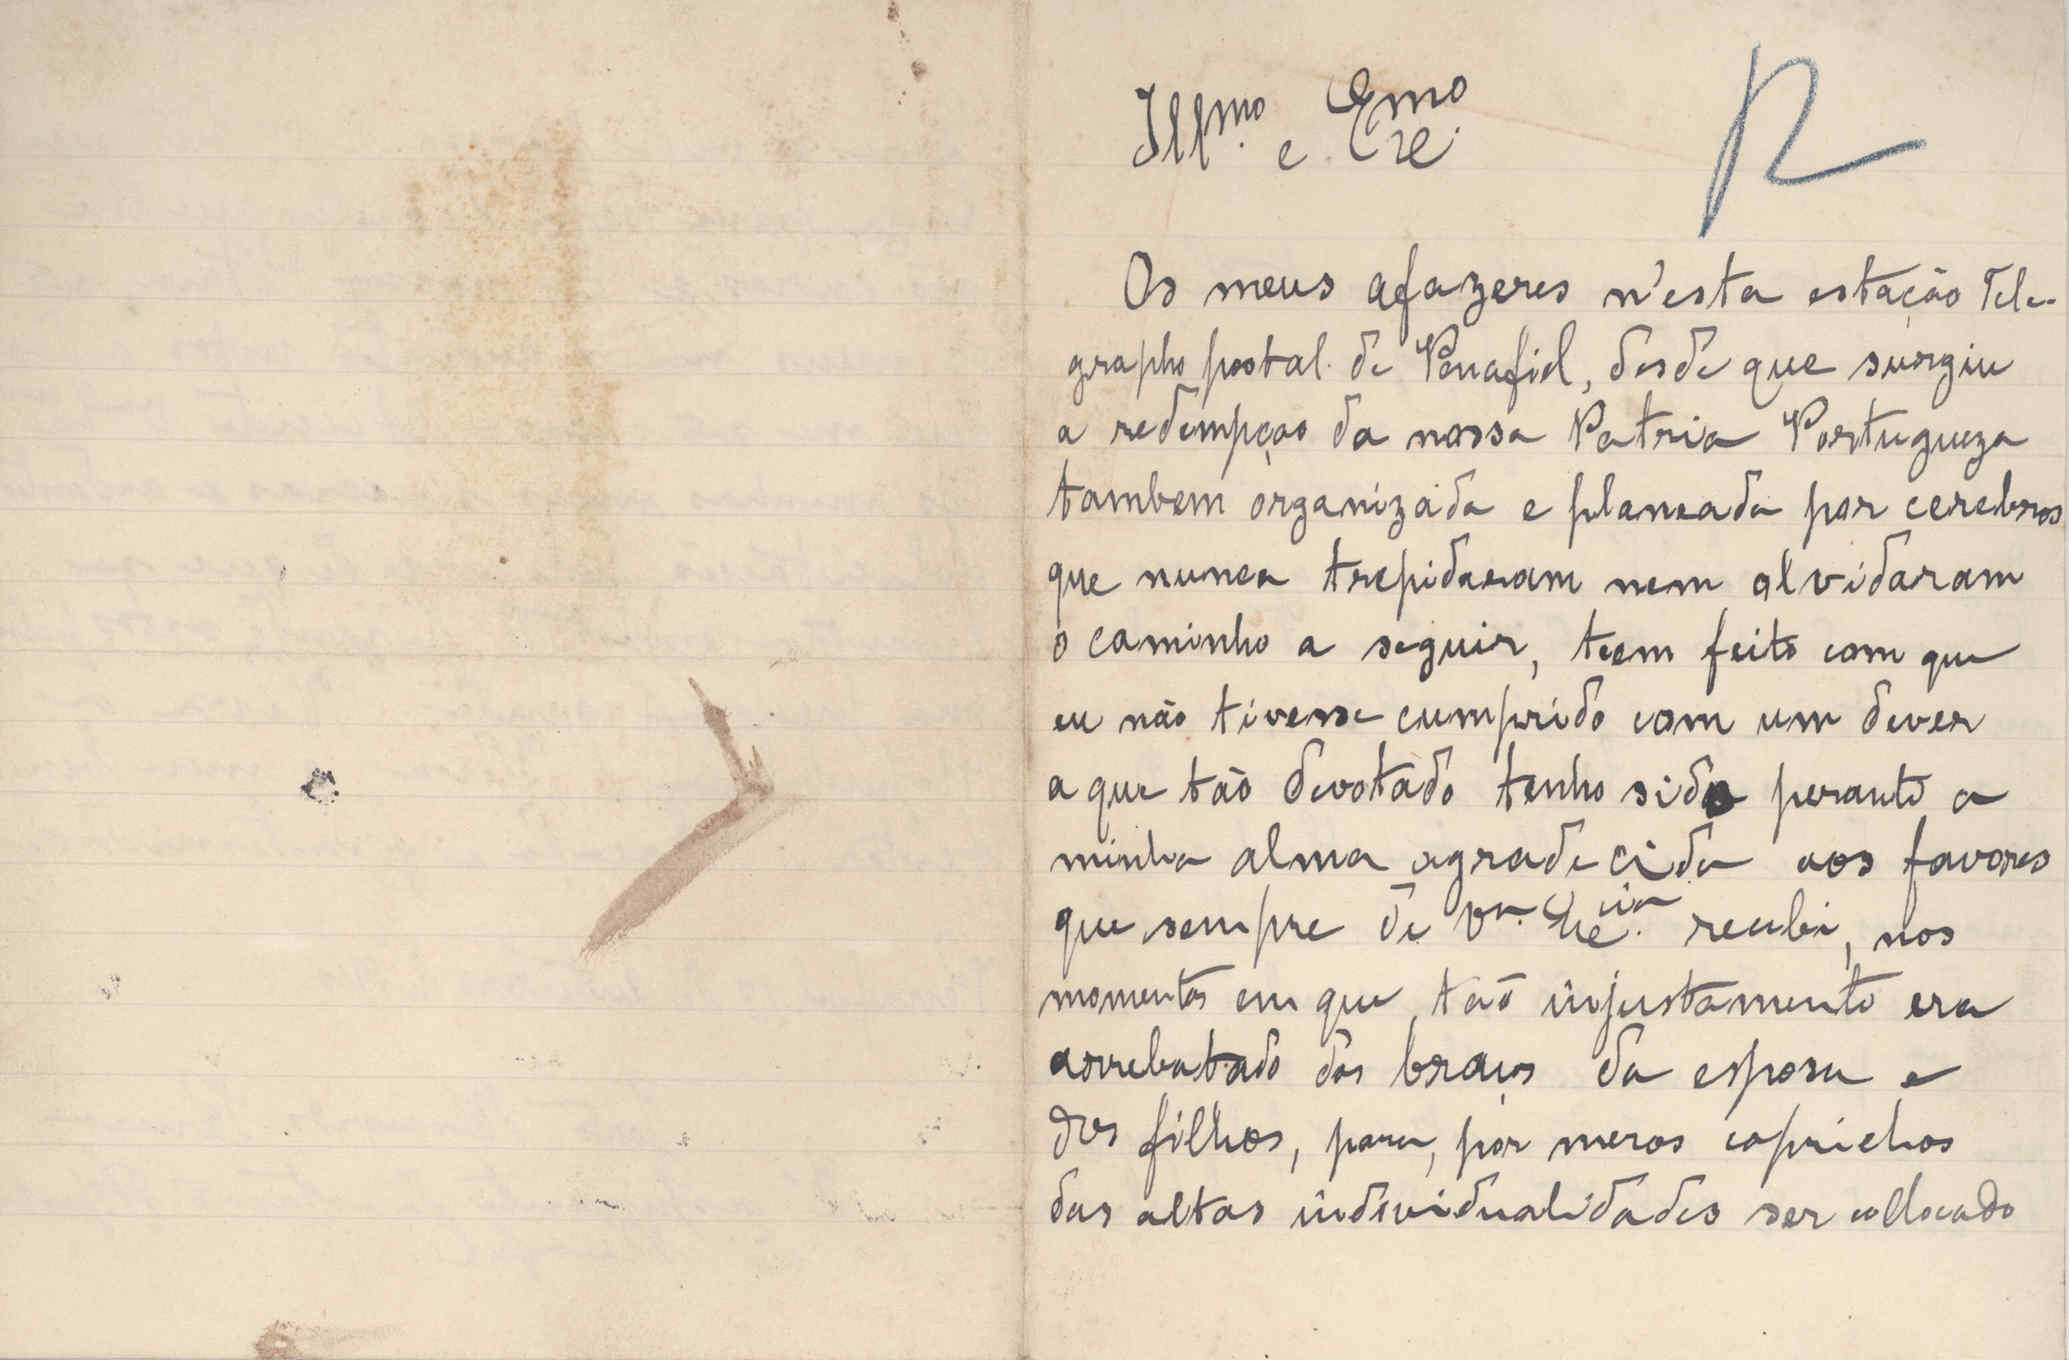 Illmo. e Exmo.
R
Os meus afazeres n'esta estação Tele-
grapho postal de Penafiel, desde que surgiu
a redempção da nossa Patria Portugueza
tambem organizada e planeada por cerebros
que nunca trepidaram nem olvidaram
o caminho a seguir, teem feito com que
eu não tivesse cumprido com um dever
a que tão devotado tenho sido perante a
minha alma agradecida aos favores
que sempre de Va. Excia. recebi, nos
momentos em que, tão injustamente era
arrebatado dos braços da esposa e
dos filhos, para, por meros caprichos
das altas individualidades ser collocado